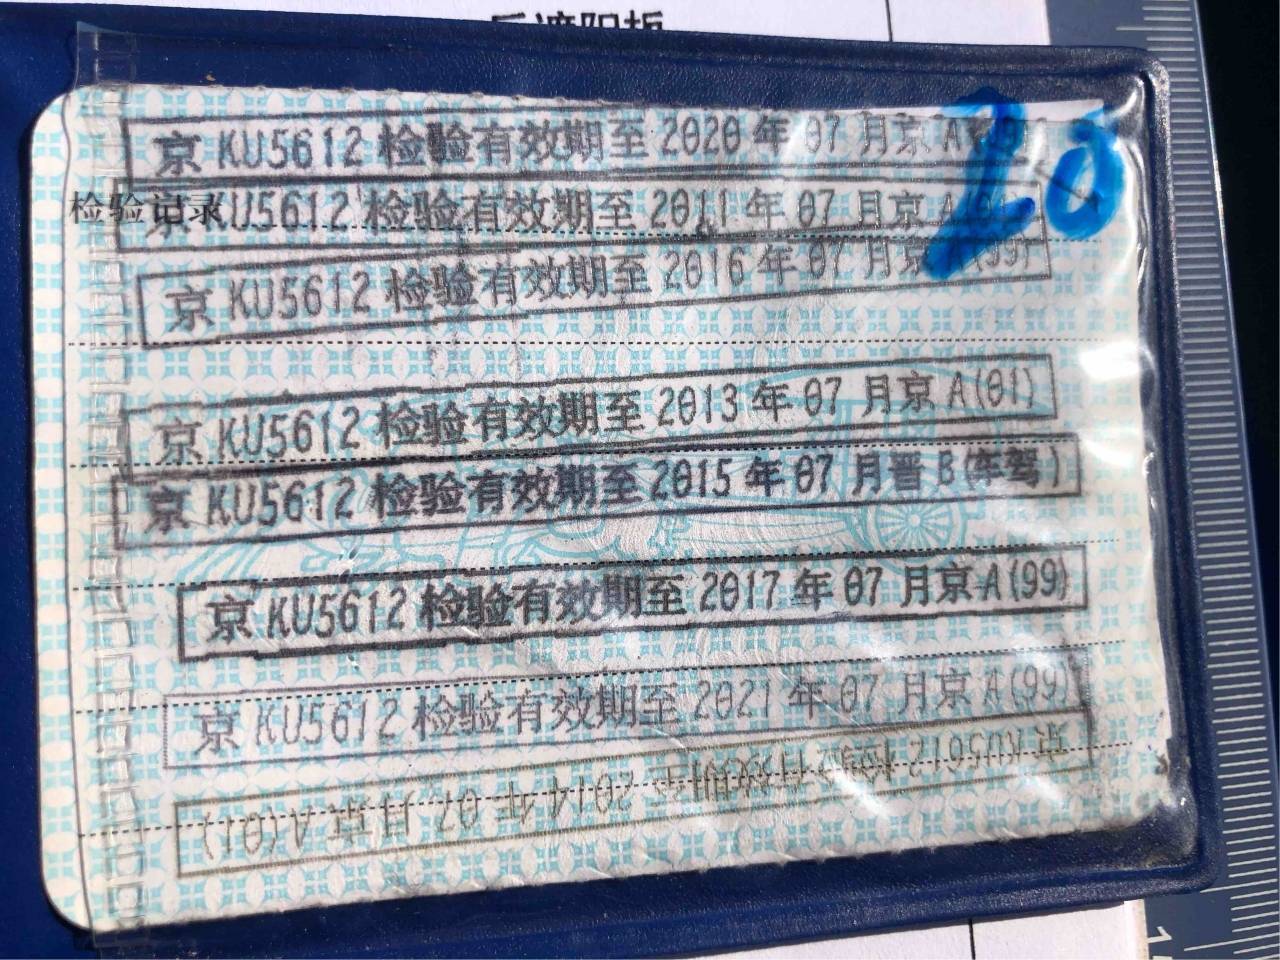 后遮阳板
京 KU5612 检验有效期至 2020 年 07 月京 A
检验记录
KU5612 检验有效期至 2011 年 07 月京 A
20
京 KU5612 检验有效期至 2016 年 07 月京 (99)
京 KU5612 检验有效期至 2013 年 07 月京 A(01)
京 KU5612 检验有效期至 2015 年 07 月晋 B(车驾)
京 KU5612 检验有效期至 2017 年 07 月京 A(99)
京 KU5612 检验有效期至 2021 年 07 月京 A(99)
京 KU5612 检验有效期至 2014 年 07 月京 A(01)